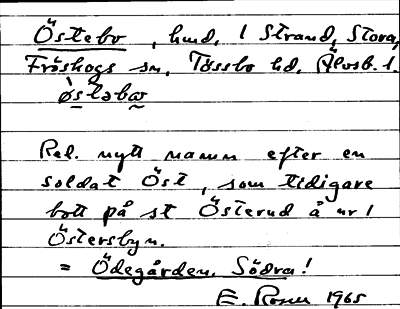 Östebo, hmd, 1 Strand, Stora,
Fröskogs sn, Tössbo hd, Älvsb. l.
østəbω
Rel. nytt namn efter en
soldat Öst, som tidigare
bott på st Österud å nr 1
Östersbyn.
= Ödegården, Södra!
E. Rosén 1965